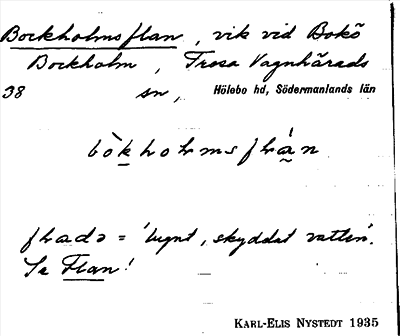 Bockholmsflan, vik vid Bokö
Bockholm, Trosa Vagnhärads
38 sn, Hölebo hd, Södermanlands län
bòkholmsflán
fladə = 'lugnt, skyddat vatten'.
Se Flan!
KARL-ELIS NYSTEDT 1935